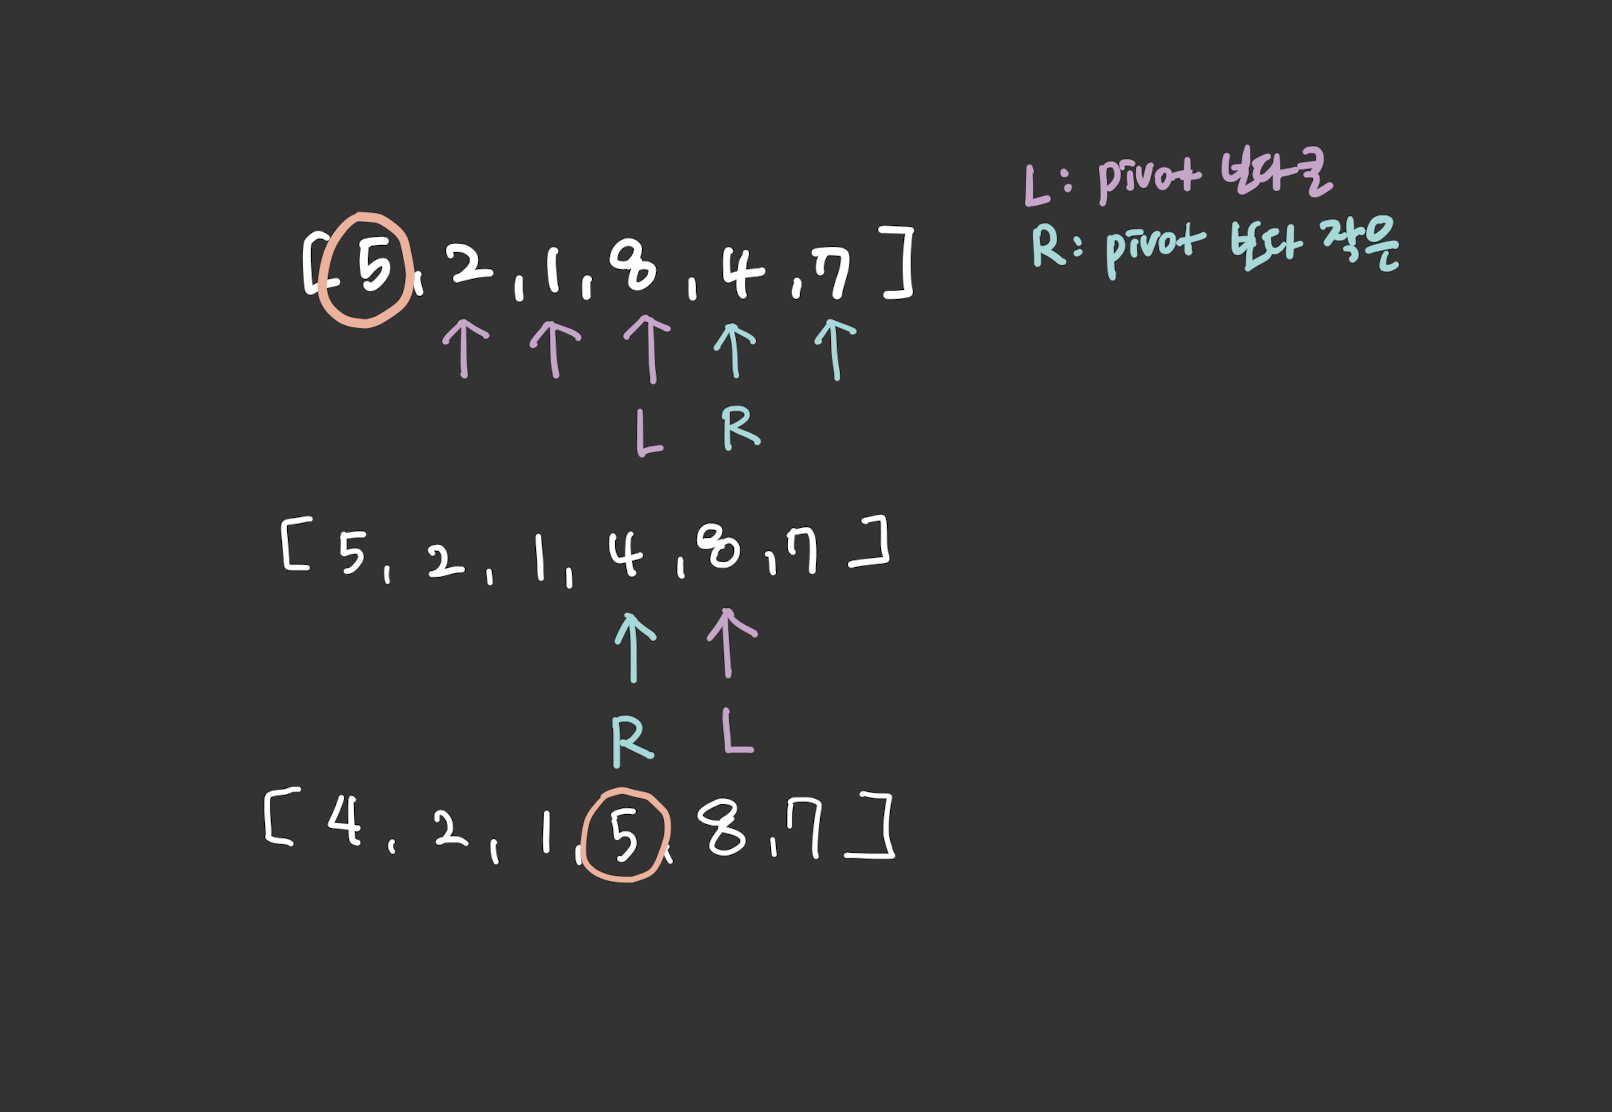 L: pivot 보다큰
R: pivot 보다 작은
[5, 2, 1, 8, 4, 7]
L R
[5, 2, 1, 4, 8, 7]
R L
[4, 2, 1, 5, 8, 7]